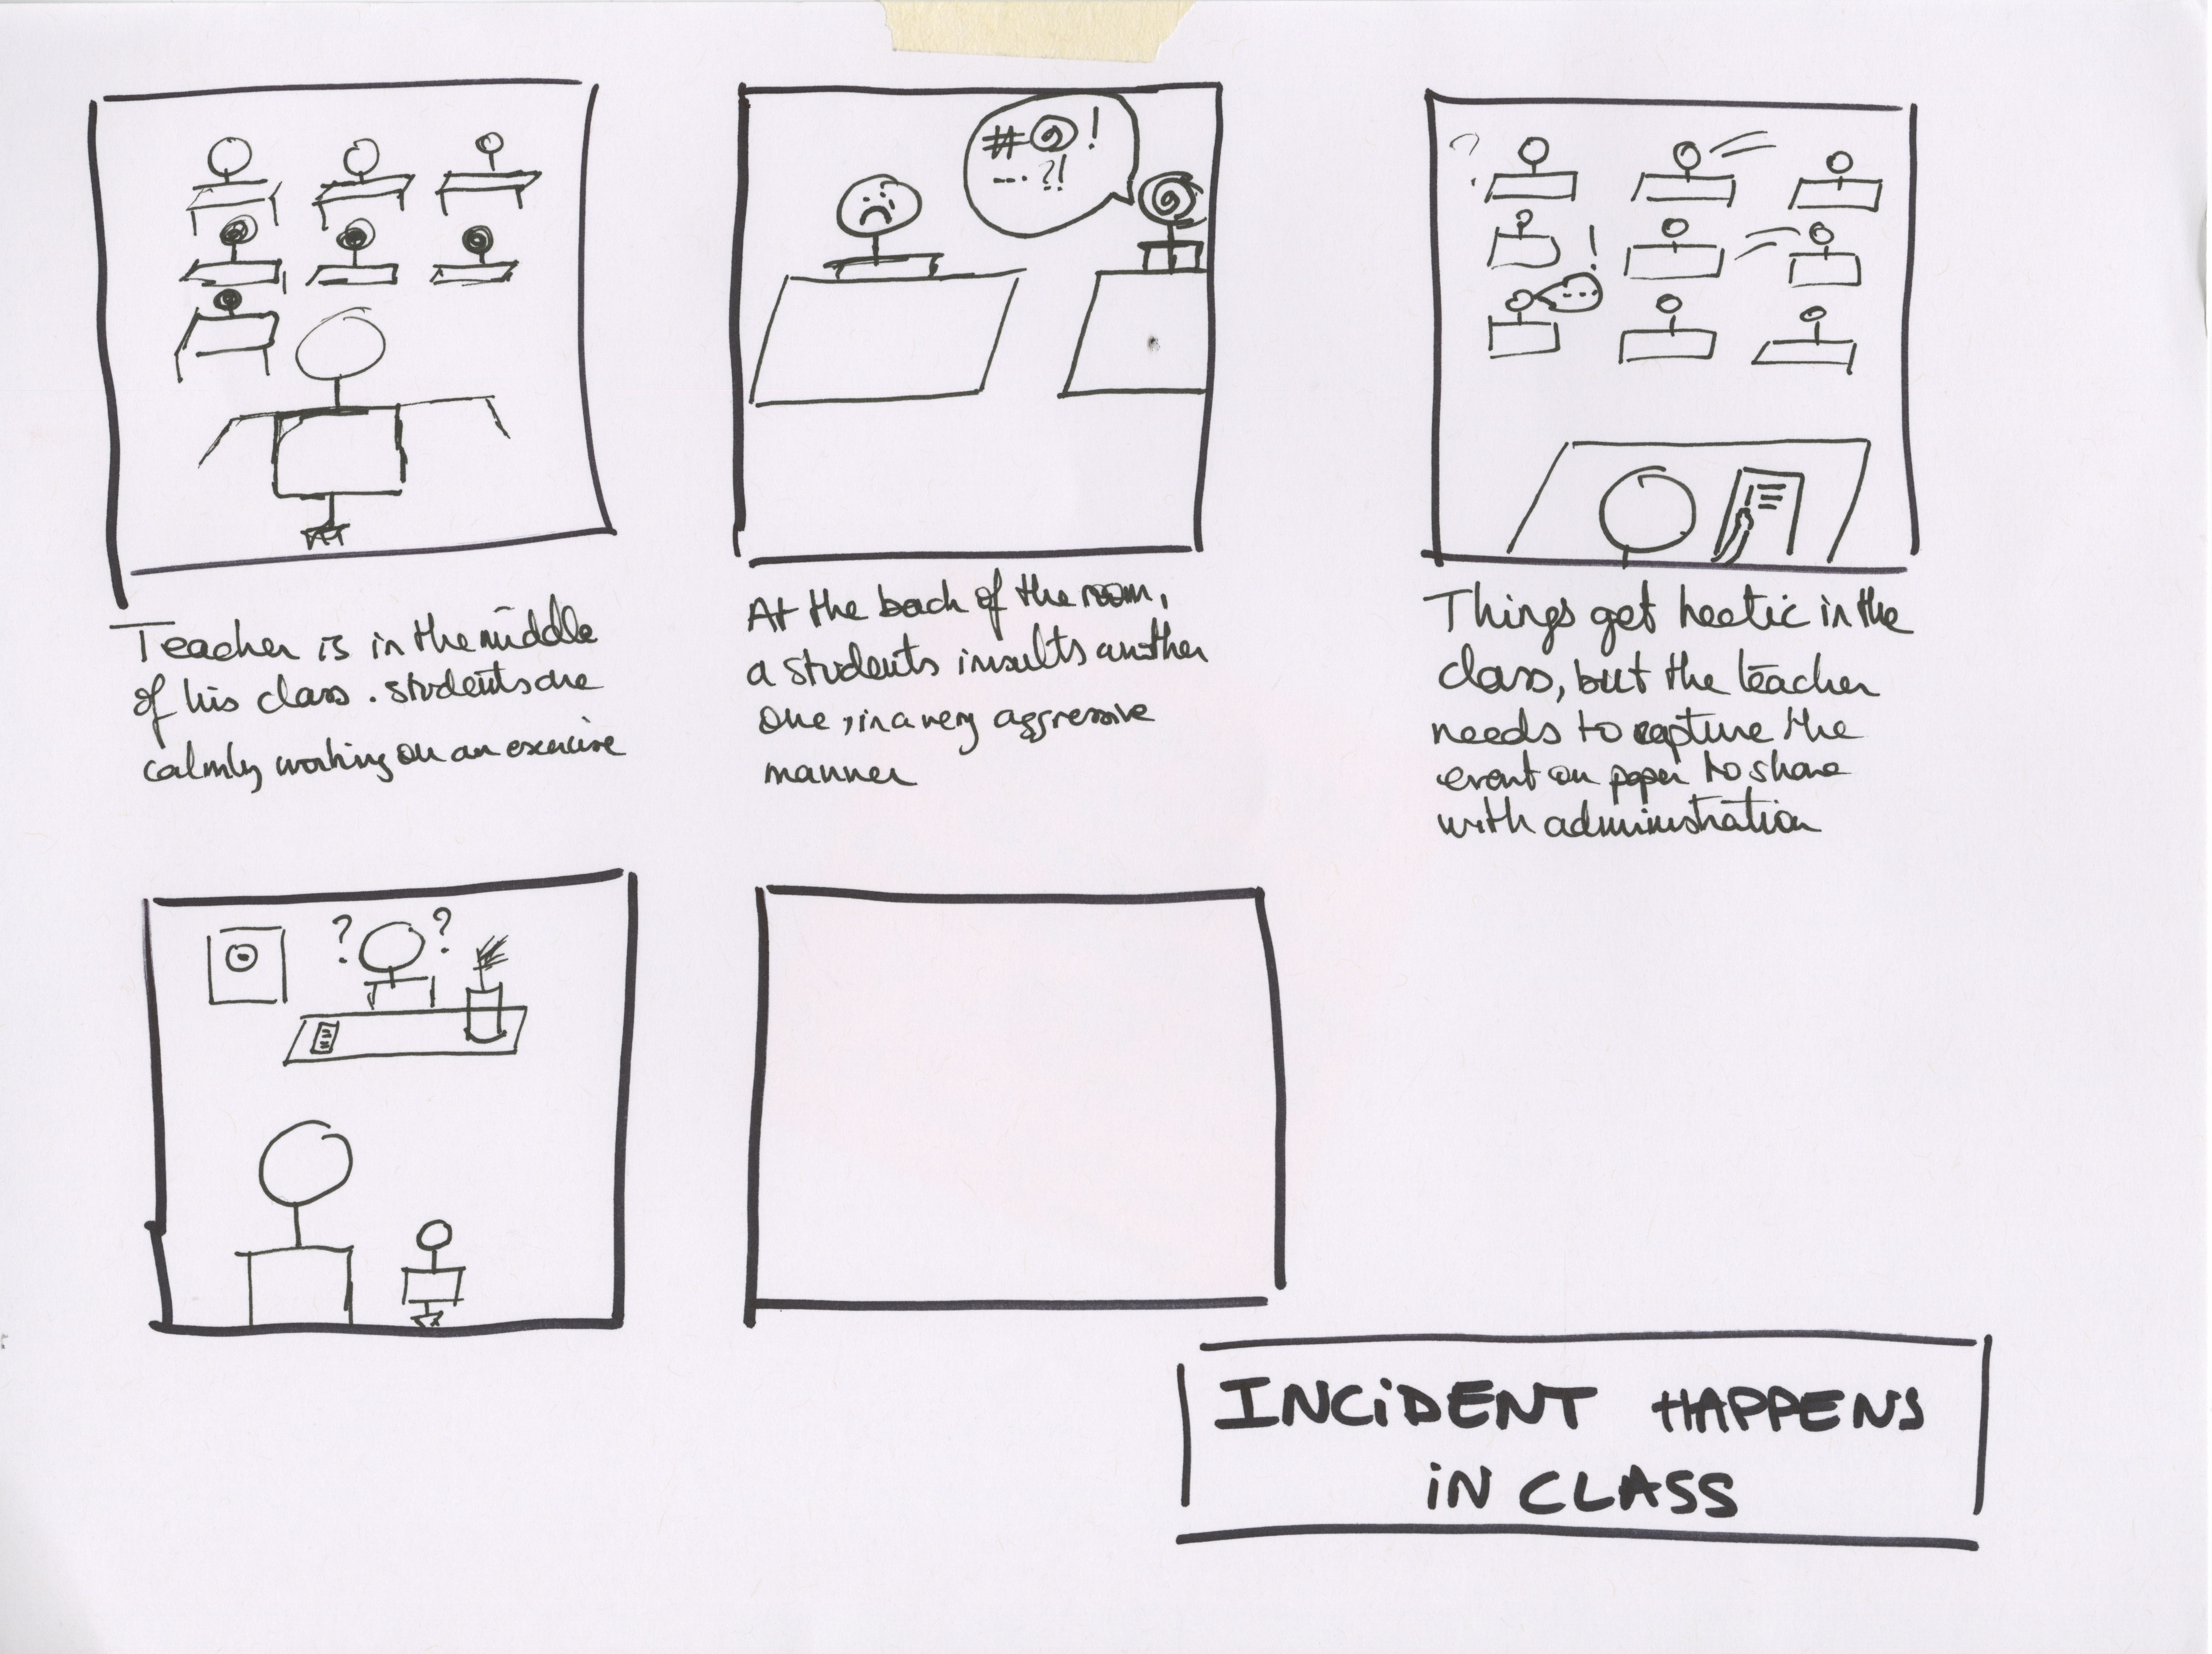 #@!
---?!
?
!
---
Teacher is in the middle
of his class. students are
calmly working on an exercise
At the back of the room,
a students insults another
one, in a very aggressive
manner
Things get hectic in the
class, but the teacher
needs to capture the
event on paper to share
with administration
? ?
INCiDENT HAPPENS
iN CLASS